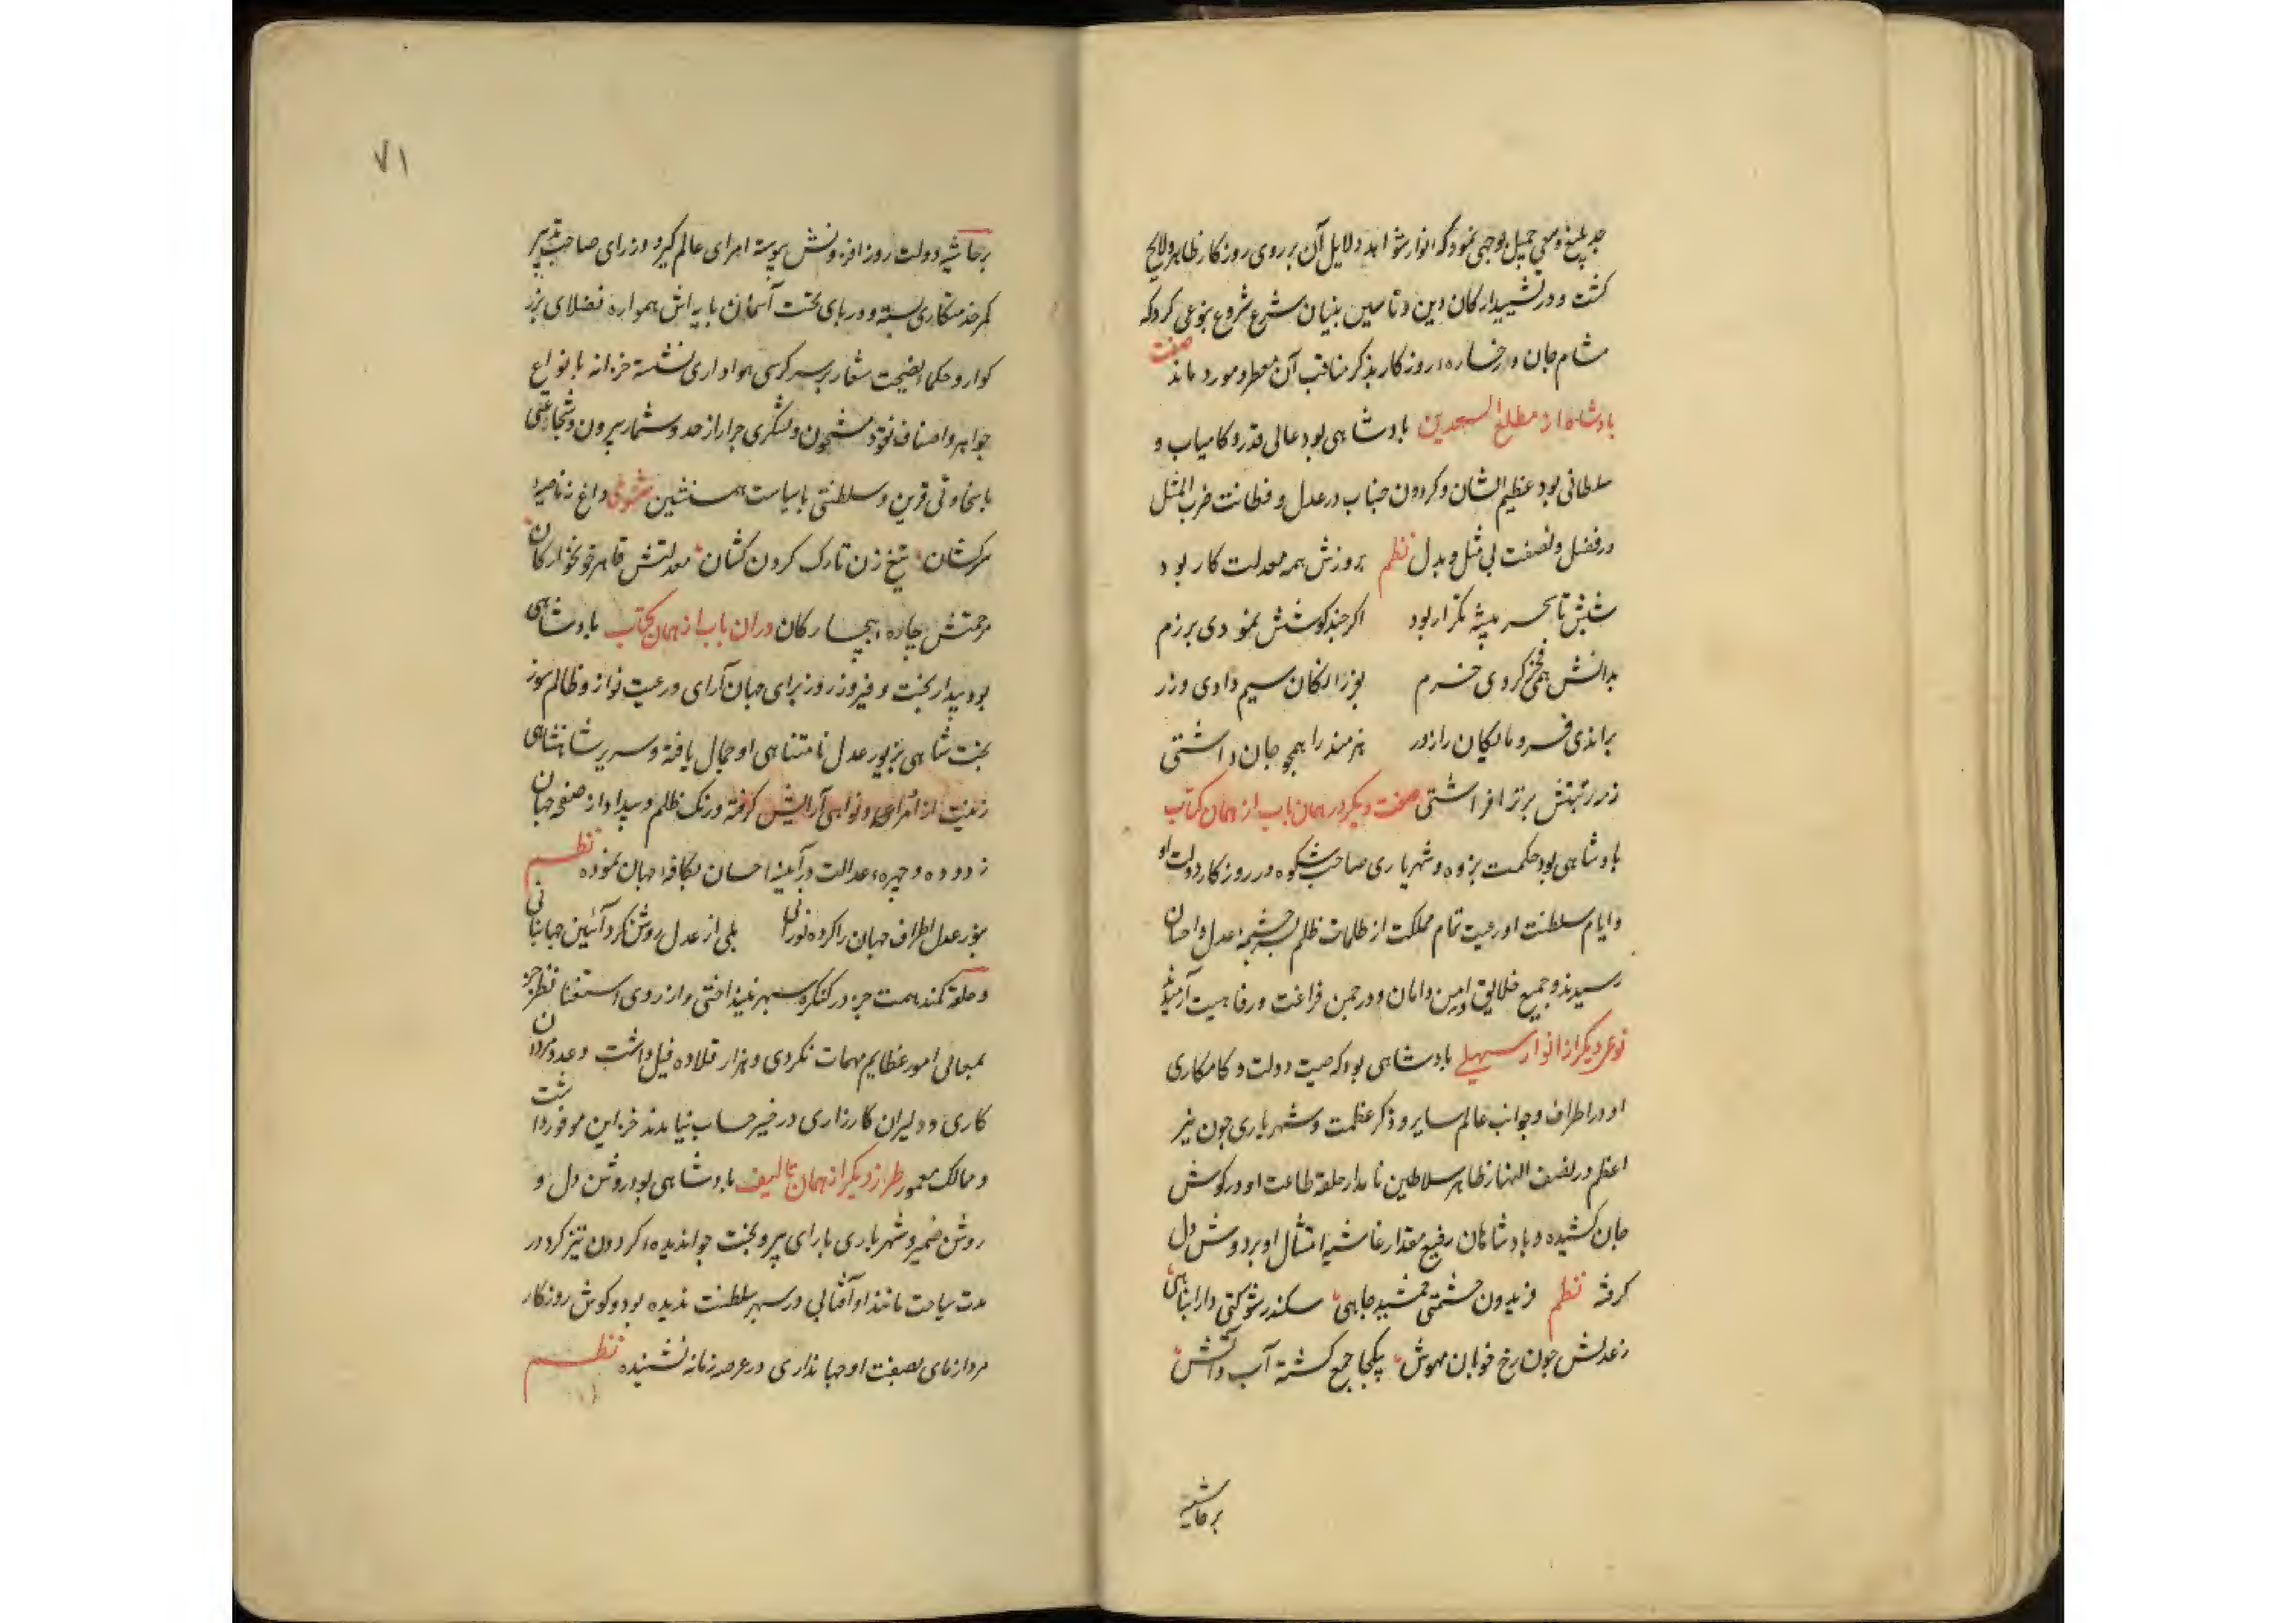 جد بلیغ و سعی جمیل بوجهی نمود که انوار شواهد دلایل آن بر روی روزکار ظاهر و لایح
کشت و در تشیید ارکان دین و تاسیس بنیان شرع شروع بنوعی کرد که
مشام جان و رخساره روزکار بذکر مناقب آن معطر و مورد ماند صفت
بادشاه از مطلع السعدین بادشاهی بود عالی قدر و کامیاب و
سلطانی بود عظیم الشان و کردون جناب در عدل و فطانت ضرب المثل
در فضل و نصفت بی مثل و بدل نظم بروزش همه معدلت کار بود
شبش تا سحر پیشه تکرار بود اکر چند کوشش نمودی برزم
بدانش همی فخر کردی خرم بفرزانکان سیم دادی و زر
براندی فرومایکان را ز در هنرمند را همچو جان داشتی
ز هر رتبتش برتر افراشتی صفت دیکر در همان باب از همان کتاب
بادشاهی بود حکمت پژوه و شهریاری صاحب شکوه در روزکار دولت او
و ایام سلطنت او رعیت تمام مملکت از ظلمات ظلم بسرچشمه عدل و احسان
رسیدند و جمیع خلایق در امن و امان و در چمن فراغت و رفاهیت آرمیدند
نوعی دیکر از انوار سهیلی بادشاهی بود که صیت دولت و کامکاری
او در اطراف و جوانب عالم سایر و ذکر عظمت و شهریاری چون نیر
اعظم در نصف النهار ظاهر سلاطین نامدار حلقه طاعت او در کوش
جان کشیده و بادشاهان رفیع مقدار غاشیه امتثال او بر دوش دل
کرفته نظم فریدون حشمتی جمشید جاهی سکندر شوکتی دارا پناهی
ز عدلش چون رخ خوبان مهوش یکجا جمع کشته آب و آتش
بر حاشیه
۷۱
بر حاشیه دولت روز افزونش پیوسته امرای عالم کیر و وزرای صاحب تدبیر
کمر خدمتکاری بسته و در پای تخت آسمان پایه اش همواره فضلای بزر
کوار و حکماء نصیحت شعار بر سر کرسی هواداری نشسته خزانه بانواع
جواهر و اصناف نقود مشحون و لشکری جرار از حد و شمار بیرون و شجاعتی
با سخاوتی قرین و سلطنتی با سیاست همنشین مثنوی داغ نه ناصیه
سرکشان تیغ زن تارک کردن کشان معدلتش قاهر خونخوارکان
مرحمتش چاره بیچارکان در آن باب از همان کتاب بادشاهی
بود بیدار بخت و فیروز روز برای جهان آرای و رعیت نواز و ظالم سوز
تخت شاهی بزیور عدل نامتناهی او جمال یافته و سریر شاهنشاهی
زینت از اوامر و نواهی آرایش کرفته و زنک ظلم و بیداد از صفحه جهان
زدوده و چهره عدالت در آینه احسان بکافه جهان نموده نظم
بنور عدل اطراف جهان را کرده نورانی بلی از عدل روشن کرد آئین جهانبانی
و حلقه کمند همت جز در کنکره سپهر نینداختی و از روی استغنا نظر جز
بمعالی امور عظایم مهمات نکردی و هزار قلاده فیل داشت و عدد مردان
کاری و دلیران کارزاری در حیز حساب نیامدند خزاین موفور داشت
و ممالک معمور طراز دیکر از همان تالیف بادشاهی بود روشن دل و
روشن ضمیر و شهریاری با رای پیر و بخت جوان دیده کردون تیز کرد در
مدت سیاحت مانند او آفتابی در سپهر سلطنت ندیده بود و کوش روزکار
مرد آزمای بصفت او جهانداری در عرصه زمانه نشنیده نظم